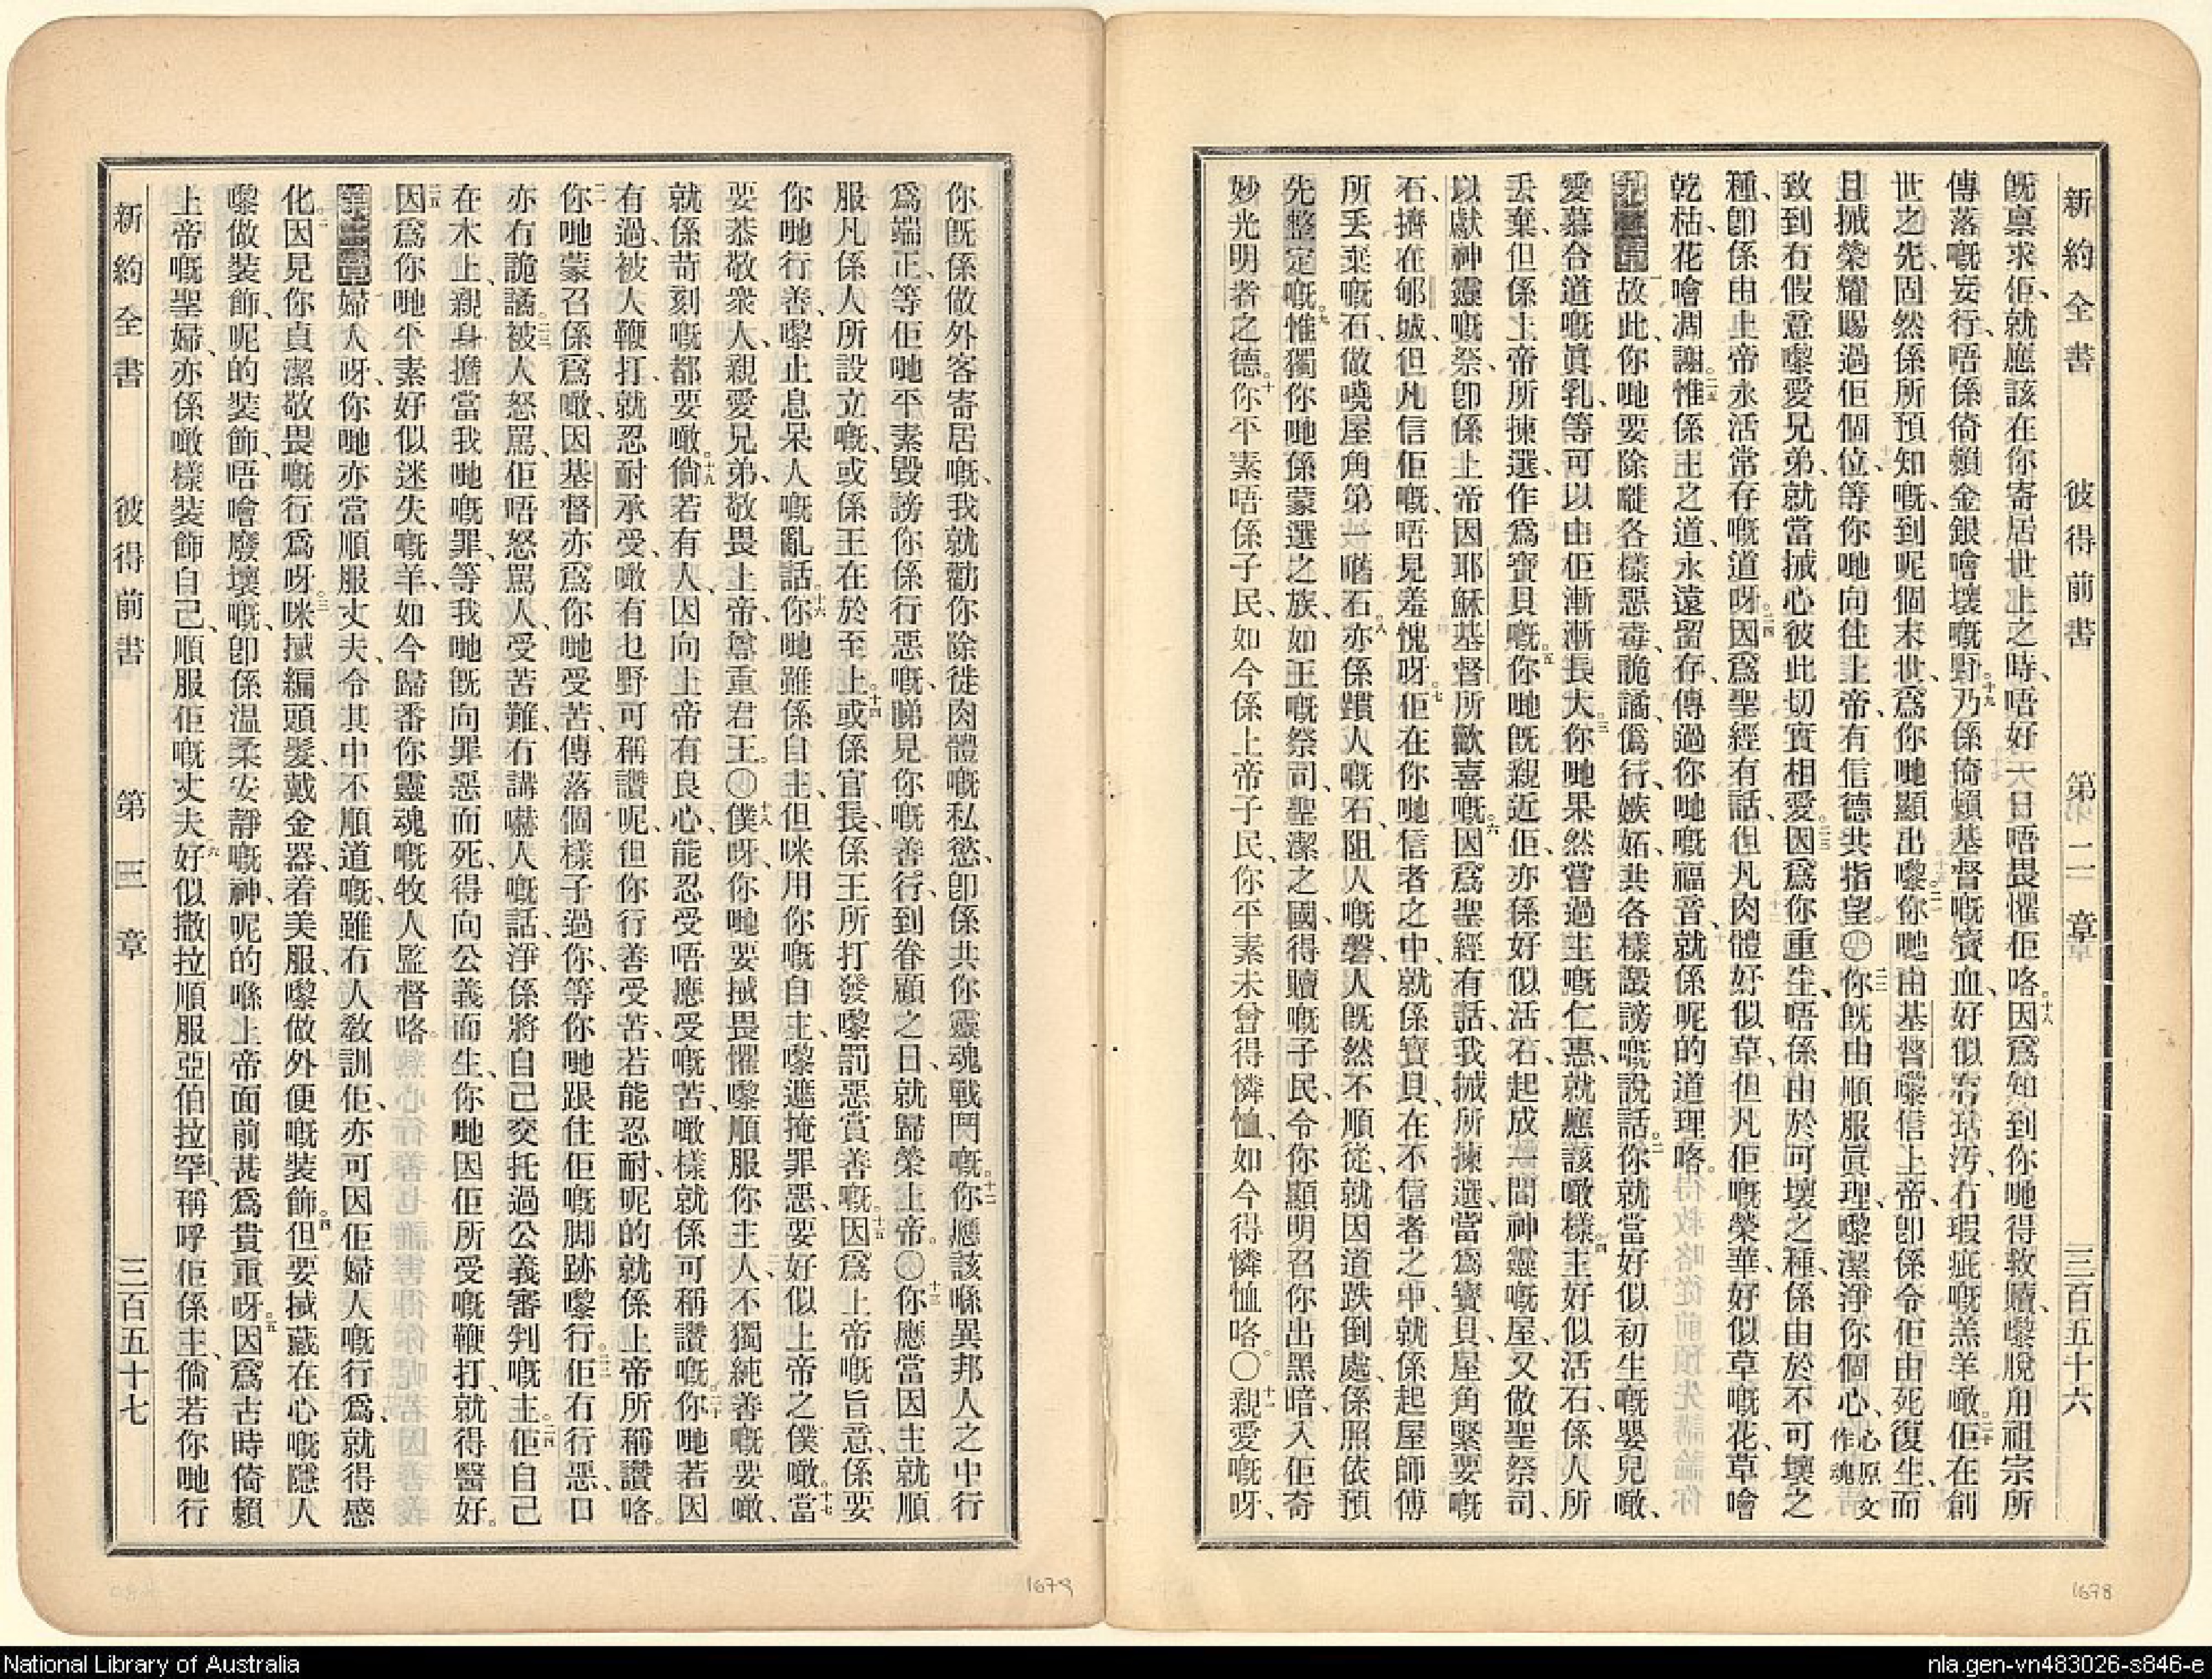 新約全書　彼得前書　第二章　三百五十六
既禀求佢、就應該在你寄居世上之時、唔好一日唔畏懼佢咯。十八因爲知到你哋得救贖、嚟脫甪祖宗所
傳落嘅妄行、唔係倚賴金銀噲壞嘅野。十九乃係倚賴基督嘅寶血、好似冇玷汚、冇瑕疵嘅羔羊噉。二十佢在創
世之先、固然係所預知嘅、到呢個末世、爲你哋顯出嚟。二一你哋由基督嚟信上帝、卽係令佢由死復生、而
且摵榮耀賜過佢個位、等你哋向住上帝、有信德共指望〇二二你旣由順服眞理、嚟潔淨你個心、心原文作魂
致到冇假意嚟愛兄弟、就當摵心彼此切實相愛。二三因爲你重生、唔係由於可壞之種、係由於不可壞之
種、卽係由上帝永活常存嘅道呀。二四因爲聖經有話、但凡肉體好似草、但凡佢嘅榮華、好似草嘅花、草噲
乾枯、花噲凋謝。二五惟係主之道、永遠留存、傳過你哋嘅福音、就係呢的道理咯。
第二章一故此、你哋要除嘥各樣惡毒、詭譎、僞行、嫉妬、共各樣譭謗嘅說話。二你就當好似初生嘅嬰兒噉、
愛慕合道嘅眞乳、等可以由佢漸漸長大。三你哋果然嘗過主嘅仁惠、就應該噉樣。四主好似活石、係人所
丢棄、但係上帝所揀選、作爲寶貝嘅。五你哋旣親近佢、亦係好似活石、起成一間神靈嘅屋、又做聖祭司、
以獻神靈嘅祭、卽係上帝因耶穌基督所歡喜嘅。六因爲聖經有話、我摵所揀選、當爲寶貝、屋角緊要嘅
石、擠在郇城、但凡信佢嘅、唔見羞愧呀。七佢在你哋信者之中、就係寶貝、在不信者之中、就係起屋師傅
所丢棄嘅石、做曉屋角第一嚿石。八亦係躓人嘅石、阻人嘅磐、人旣然不順從、就因道跌倒處、係照依預
先整定嘅。九惟獨你哋係蒙選之族、如王嘅祭司、聖潔之國、得贖嘅子民、令你顯明召你出黑暗、入佢奇
妙光明者之德。十你平素唔係子民、如今係上帝子民、你平素未曾得憐恤、如今得憐恤咯。〇十一親愛嘅呀、
你旣係做外客寄居嘅、我就勸你除徙肉體嘅私慾、卽係共你靈魂戰鬥嘅。十二你應該喺異邦人之中行
爲端正、等佢哋平素毀謗你係行惡嘅、睇見你嘅善行、到眷顧之日、就歸榮上帝。〇十三你應當因主就順
服凡係人所設立嘅、或係王在於至上。十四或係官長、係王所打發嚟罰惡賞善嘅。十五因爲上帝嘅旨意、係要
你哋行善、嚟止息呆人嘅亂話。十六你哋雖係自主、但咪用你嘅自主、嚟遮掩罪惡、要好似上帝之僕噉。十七當
要恭敬衆人、親愛兄弟、敬畏上帝、尊重君王。〇十八僕呀、你哋要摵畏懼嚟順服你主人、不獨純善嘅要噉、
就係苛刻嘅都要噉。十九倘若有人、因向上帝有良心、能忍受唔應受嘅苦、噉樣就係可稱讚嘅。二十你哋若因
有過、被人鞭打、就忍耐承受、噉有乜野可稱讚呢、但你行善受苦、若能忍耐、呢的就係上帝所稱讚咯。
二一你哋蒙召係爲噉、因基督亦爲你哋受苦、傳落個樣子過你、等你哋跟住佢嘅脚跡嚟行。二二佢冇行惡、口
亦冇詭譎。二三被人怒罵、佢唔怒罵人、受苦難、冇講嚇人嘅話、淨係將自己交托過公義審判嘅主。二四佢自己
在木上、親身擔當我哋嘅罪、等我哋旣向罪惡而死、得向公義而生、你哋因佢所受嘅鞭打、就得醫好。
二五因爲你哋平素好似迷失嘅羊、如今歸番你靈魂嘅牧人監督咯。
第三章婦人呀、你哋亦當順服丈夫、令其中不順道嘅、雖冇人教訓佢、亦可因佢婦人嘅行爲、就得感
化。二因見你貞潔敬畏嘅行爲呀。三咪摵編頭髮、戴金器、着美服、嚟做外便嘅裝飾。四但要摵藏在心嘅隱人
嚟做裝飾、呢的裝飾、唔噲廢壞嘅、卽係溫柔安靜嘅神、呢的喺上帝面前甚爲貴重呀。五因爲古時倚賴
上帝嘅聖婦、亦係噉樣裝飾自己、順服佢嘅丈夫。六好似撒拉順服亞伯拉罕、稱呼佢係主、倘若你哋行
新約全書　彼得前書　第三章　三百五十七
1679
1678
National Library of Australia
nla.gen-vn483026-s846-e